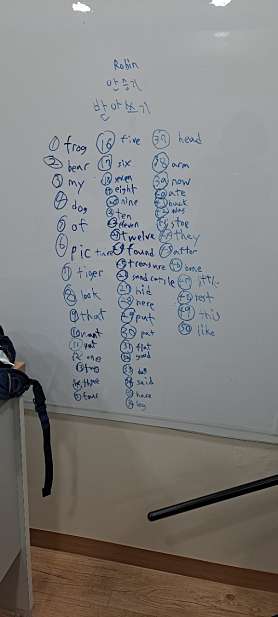 Robin
안승기
받아쓰기
1 frog
2 bear
3 my
4 dog
5 of
6 picture
7 tiger
8 look
9 that
10 want
11 not
12 one
13 two
14 three
15 four
16 five
17 six
18 seven
19 eight
20 nine
21 ten
22 eleven
23 twelve
24 found
25 treasure
26 sand castle
27 hid
28 here
29 put
30 pat
31 flat
32 good
33
34 said
35 have
36 leg
37 head
38 arm
39 now
40 ate
41 duck
42 was
43 stop
44 they
45 after
46 come
47
48 rest
49 this
50 like